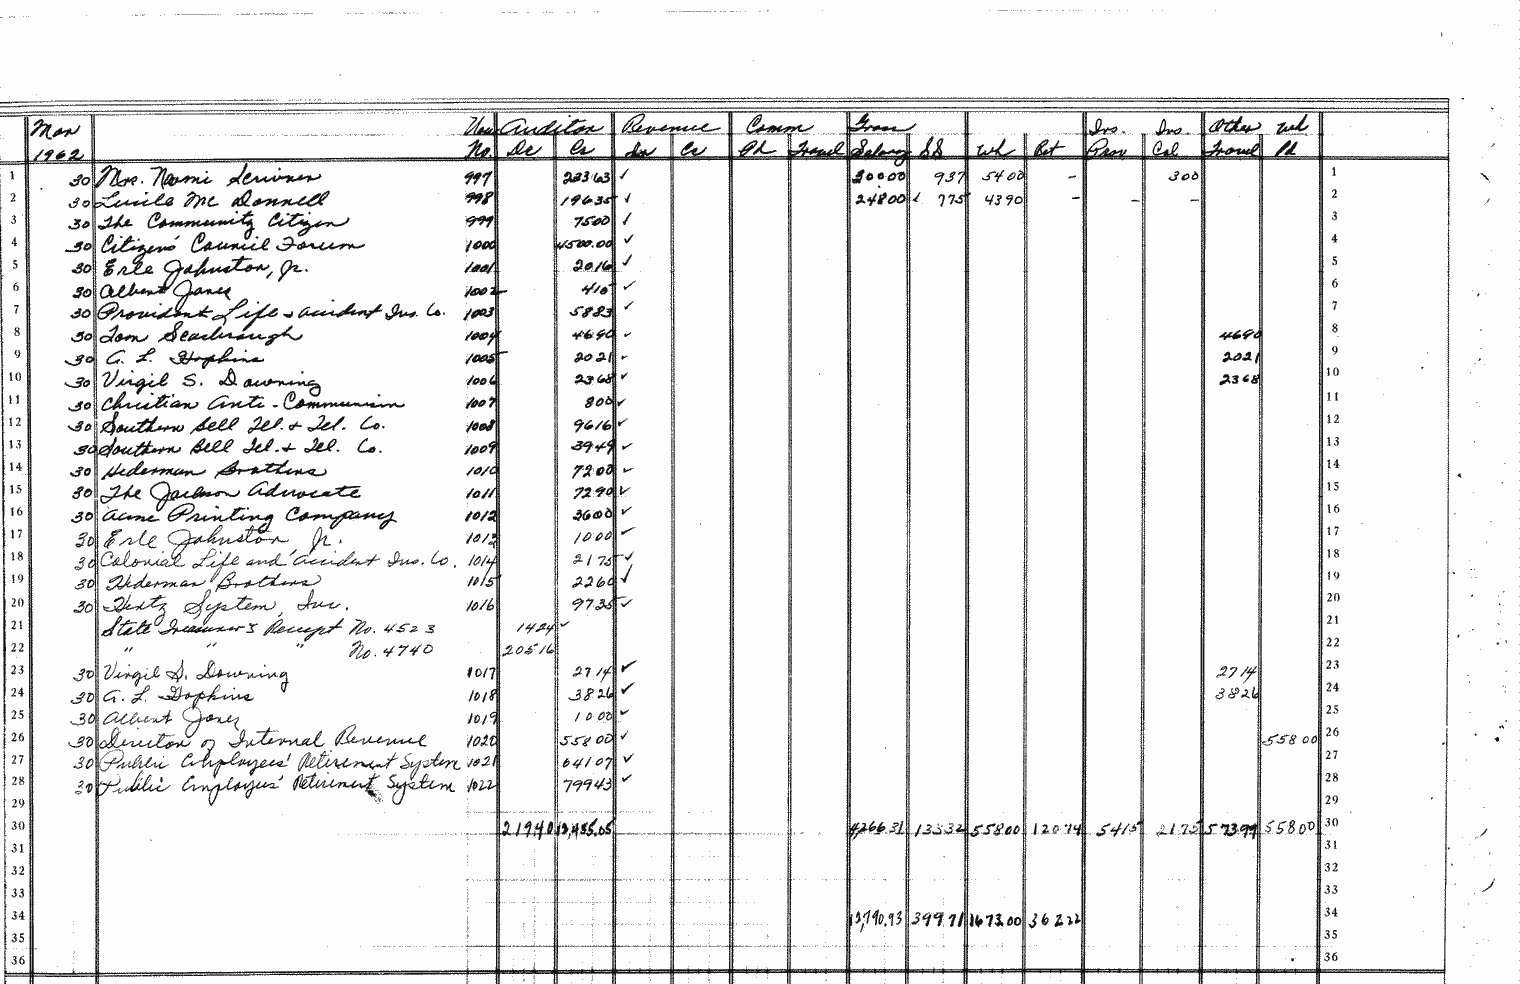 Mar Vou Auditor Revenue Comm Gross Ins. Ins. Other Wh
1962 No. Dr Cr Dr Cr Ph Travel Salary SS Wh Ret Prov Col Travel Pd
1 30 Mrs. Naomi Scrivner 997 23363 ✓ 30000 937 5400 - 300 1
2 30 Lucile Mc Donnell 998 19635 ✓ 24800 ✓ 775 4390 - - - 2
3 30 The Community Citizen 999 7500 ✓ 3
4 30 Citizens' Council Forum 1000 4500.00 ✓ 4
5 30 Erle Johnston, Jr. 1001 2016 ✓ 5
6 30 Albert Jones 1002 410 ✓ 6
7 30 Provident Life & Accident Ins. Co. 1003 5883 ✓ 7
8 30 Tom Scarbrough 1004 4690 ✓ 4690 8
9 30 A. L. Hopkins 1005 2021 ✓ 2021 9
10 30 Virgil S. Downing 1006 2368 ✓ 2368 10
11 30 Christian Anti-Communism 1007 800 ✓ 11
12 30 Southern Bell Tel. & Tel. Co. 1008 9616 ✓ 12
13 30 Southern Bell Tel. & Tel. Co. 1009 3949 ✓ 13
14 30 Hederman Brothers 1010 7200 ✓ 14
15 30 The Jackson Advocate 1011 7290 ✓ 15
16 30 Acme Printing Company 1012 3600 ✓ 16
17 30 Erle Johnston Jr. 1013 1000 ✓ 17
18 30 Colonial Life and Accident Ins. Co. 1014 2175 ✓ 18
19 30 Hederman Brothers 1015 2260 ✓ 19
20 30 Hertz System, Inc. 1016 9735 ✓ 20
21 State Treasurer's Receipt No. 4523 1424 ✓ 21
22 " " " No. 4740 20516 22
23 30 Virgil S. Downing 1017 2714 ✓ 2714 23
24 30 A. L. Hopkins 1018 3826 ✓ 3826 24
25 30 Albert Jones 1019 1000 ✓ 25
26 30 Director of Internal Revenue 1020 55800 ✓ 55800 26
27 30 Public Employees' Retirement System 1021 64107 ✓ 27
28 30 Public Employees' Retirement System 1022 79943 ✓ 28
29 29
30 21940 4266.31 13332 55800 12074 5415 2175 573.99 55800 30
31 31
32 32
33 33
34 399.71 1673.00 36222 34
35 35
36 36